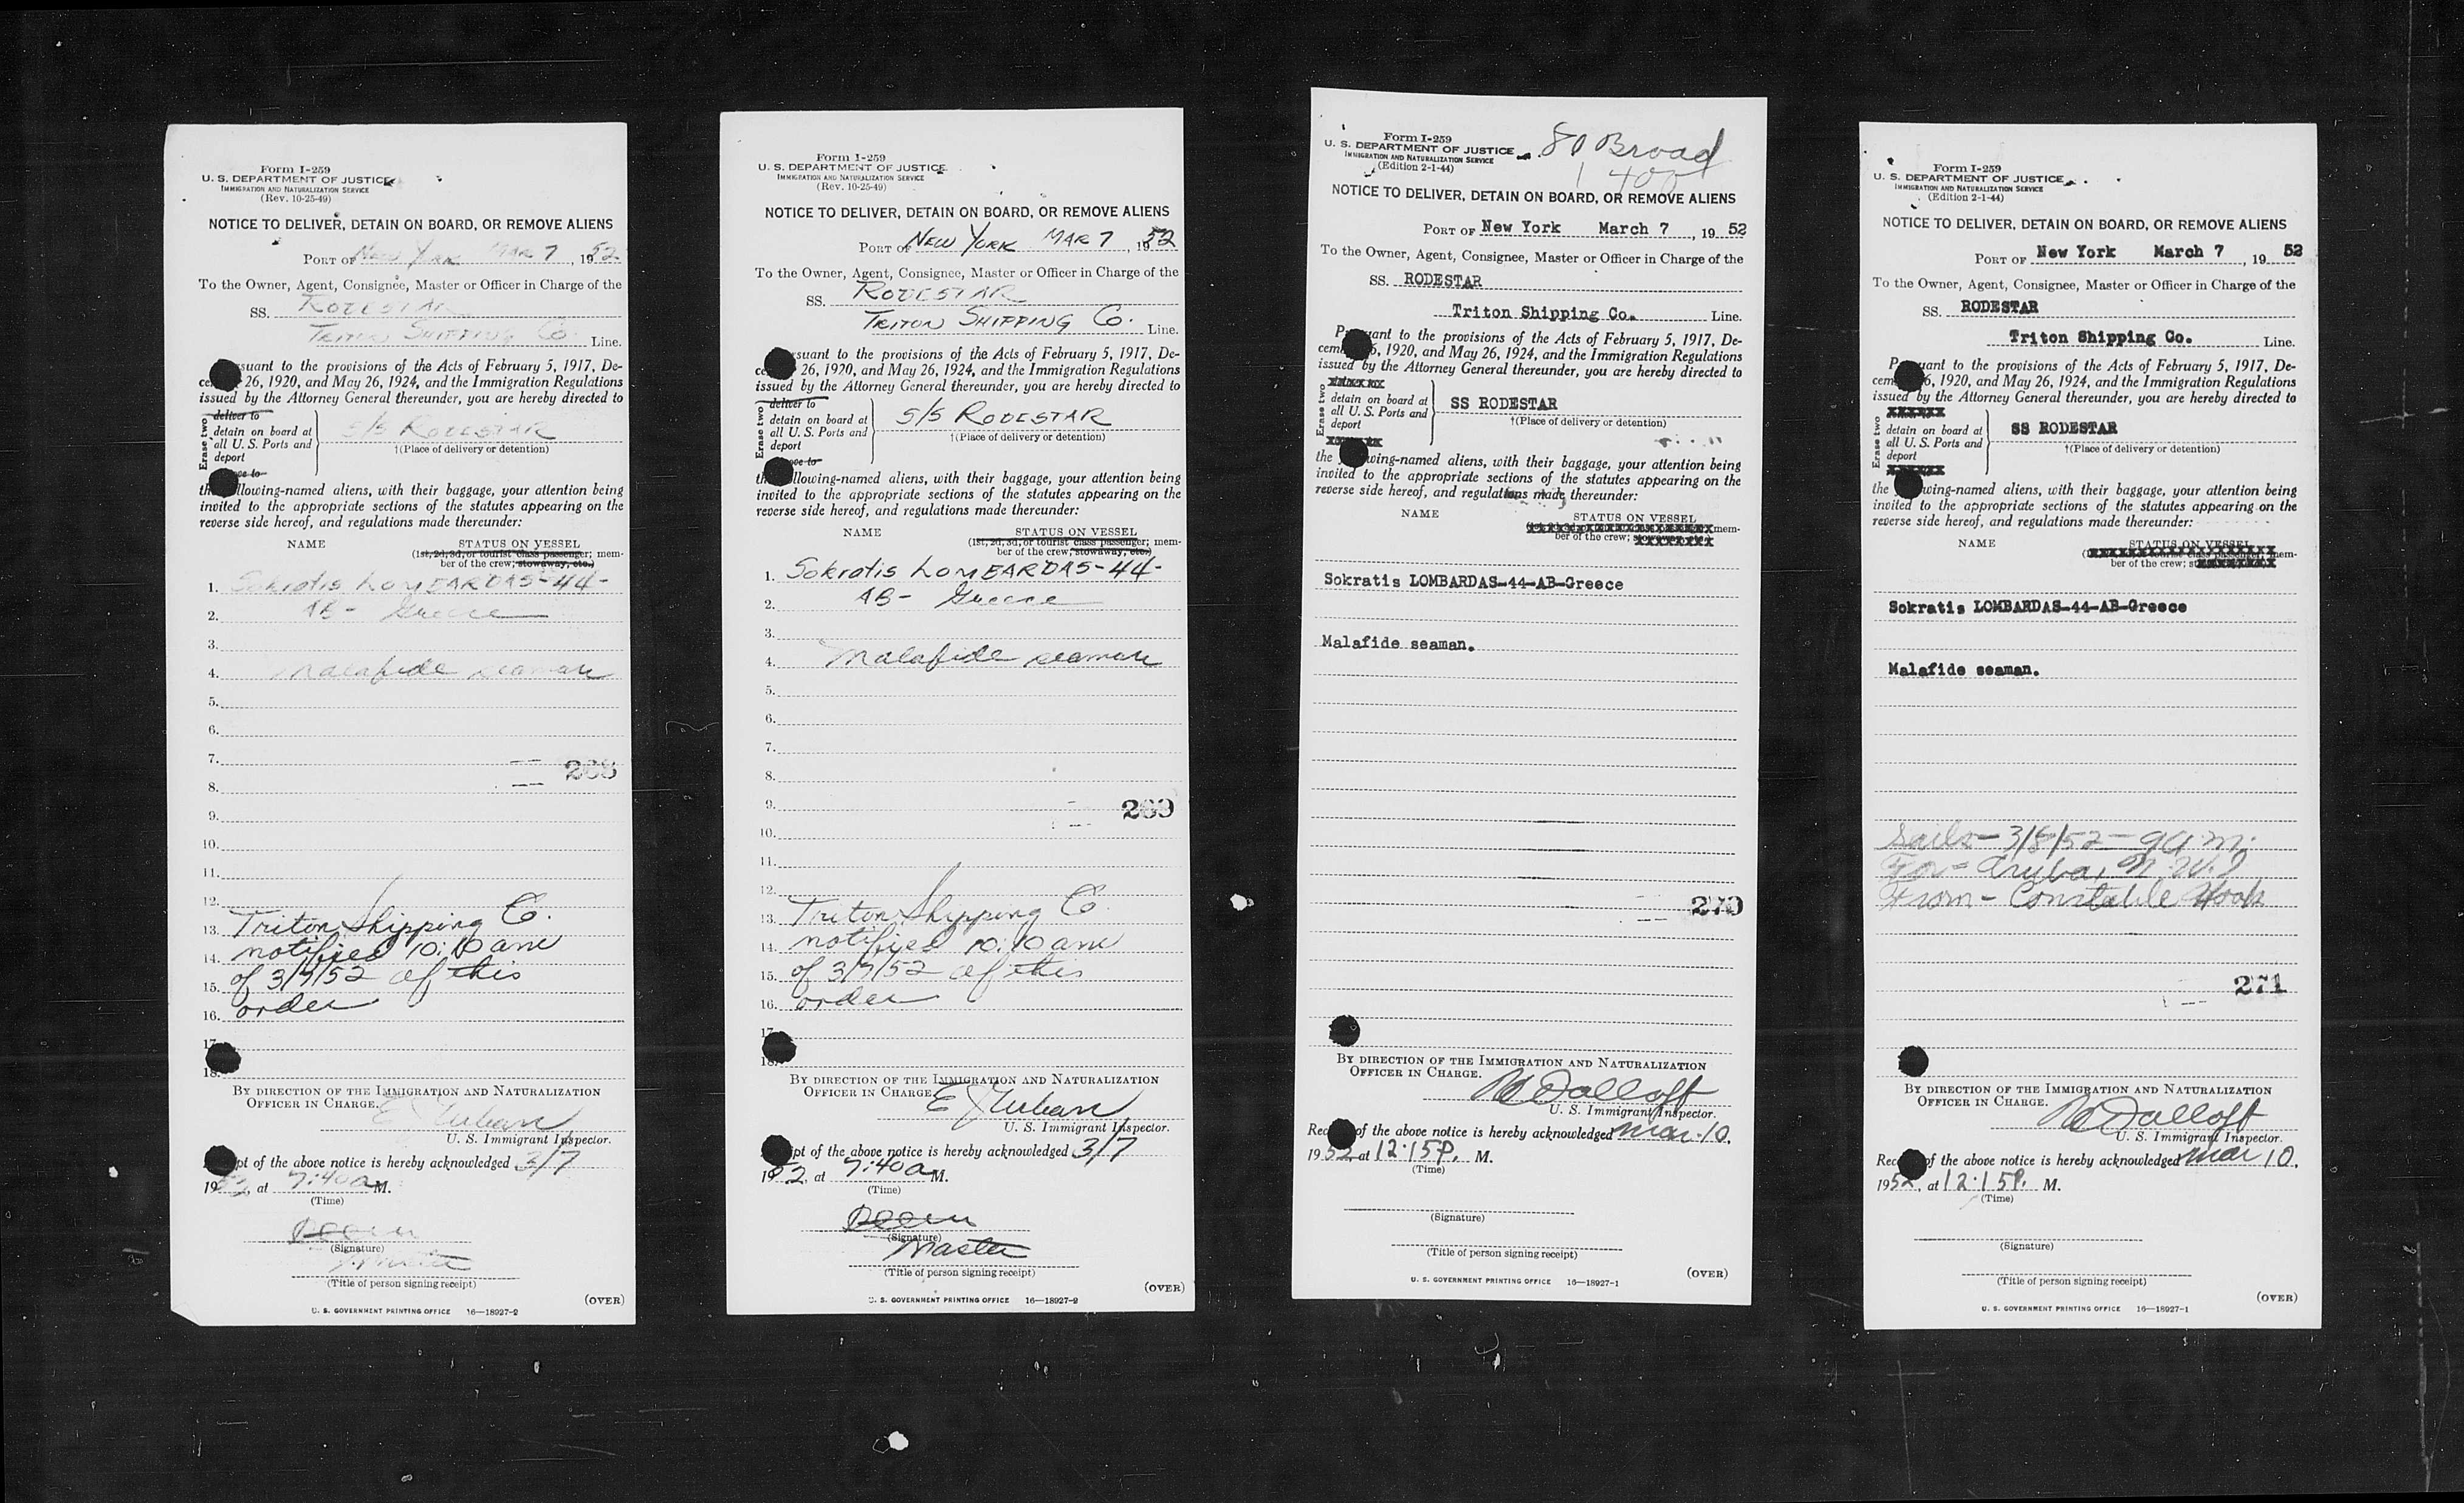 Form I-259
U. S. DEPARTMENT OF JUSTICE
IMMIGRATION AND NATURALIZATION SERVICE
(Rev. 10-25-49)
NOTICE TO DELIVER, DETAIN ON BOARD, OR REMOVE ALIENS
PORT OF NEW YORK MAR 7, 1952
To the Owner, Agent, Consignee, Master or Officer in Charge of the
SS. RODESTAR
TRITON SHIPPING Co. Line.
suant to the provisions of the Acts of February 5, 1917, De-
26, 1920, and May 26, 1924, and the Immigration Regulations
issued by the Attorney General thereunder, you are hereby directed to
Erase two
deliver to
detain on board at
all U. S. Ports and
deport
ove to
S/S RODESTAR
†(Place of delivery or detention)
llowing-named aliens, with their baggage, your attention being
invited to the appropriate sections of the statutes appearing on the
reverse side hereof, and regulations made thereunder:
NAME STATUS ON VESSEL
(1st, 2d, 3d, or tourist class passenger; mem-
ber of the crew; stowaway, etc.)
1. Sokratis LOMBARDAS-44-
2. AB- Greece
3.
4. Malafide seaman
5.
6.
7.
268
8.
9.
10.
11.
12.
13. Triton Shipping Co.
14. notified 10:10 am
15. of 3/7/52 of this
16. order
17.
18.
BY DIRECTION OF THE IMMIGRATION AND NATURALIZATION
OFFICER IN CHARGE.
U. S. Immigrant Inspector.
pt of the above notice is hereby acknowledged 3/7
1952, at 7:40 a M.
(Time)
(Signature)
Master
(Title of person signing receipt)
(OVER)
U. S. GOVERNMENT PRINTING OFFICE 16—18927-2
Form I-259
U. S. DEPARTMENT OF JUSTICE
IMMIGRATION AND NATURALIZATION SERVICE
(Rev. 10-25-49)
NOTICE TO DELIVER, DETAIN ON BOARD, OR REMOVE ALIENS
PORT OF NEW YORK MAR 7, 1952
To the Owner, Agent, Consignee, Master or Officer in Charge of the
SS. RODESTAR
TRITON SHIPPING Co. Line.
suant to the provisions of the Acts of February 5, 1917, De-
26, 1920, and May 26, 1924, and the Immigration Regulations
issued by the Attorney General thereunder, you are hereby directed to
Erase two
deliver to
detain on board at
all U. S. Ports and
deport
ove to
S/S RODESTAR
†(Place of delivery or detention)
llowing-named aliens, with their baggage, your attention being
invited to the appropriate sections of the statutes appearing on the
reverse side hereof, and regulations made thereunder:
NAME STATUS ON VESSEL
(1st, 2d, 3d, or tourist class passenger; mem-
ber of the crew; stowaway, etc.)
1. Sokratis LOMBARDAS-44-
2. AB- Greece
3.
4. Malafide seaman
5.
6.
7.
8.
9.
269
10.
11.
12.
13. Triton Shipping Co.
14. notified 10:10 am
15. of 3/7/52 of this
16. order
17.
18.
BY DIRECTION OF THE IMMIGRATION AND NATURALIZATION
OFFICER IN CHARGE.
U. S. Immigrant Inspector.
pt of the above notice is hereby acknowledged 3/7
1952, at 7:40 a M.
(Time)
(Signature)
Master
(Title of person signing receipt)
(OVER)
U. S. GOVERNMENT PRINTING OFFICE 16—18927-2
80 Broad
400
Form I-259
U. S. DEPARTMENT OF JUSTICE
IMMIGRATION AND NATURALIZATION SERVICE
(Edition 2-1-44)
NOTICE TO DELIVER, DETAIN ON BOARD, OR REMOVE ALIENS
PORT OF New York March 7, 1952
To the Owner, Agent, Consignee, Master or Officer in Charge of the
SS. RODESTAR
Triton Shipping Co. Line.
P uant to the provisions of the Acts of February 5, 1917, De-
cem 6, 1920, and May 26, 1924, and the Immigration Regulations
issued by the Attorney General thereunder, you are hereby directed to
Erase two
XXXXXX
detain on board at
all U. S. Ports and
deport
XXXXXX
SS RODESTAR
†(Place of delivery or detention)
the wing-named aliens, with their baggage, your attention being
invited to the appropriate sections of the statutes appearing on the
reverse side hereof, and regulations made thereunder:
NAME STATUS ON VESSEL
mem-
ber of the crew;
Sokratis LOMBARDAS-44-AB-Greece
Malafide seaman.
270
BY DIRECTION OF THE IMMIGRATION AND NATURALIZATION
OFFICER IN CHARGE.
U. S. Immigrant Inspector.
Rec of the above notice is hereby acknowledged Mar. 10,
1952 at 12:15 P. M.
(Time)
(Signature)
(Title of person signing receipt)
(OVER)
U. S. GOVERNMENT PRINTING OFFICE 16—18927-1
Form I-259
U. S. DEPARTMENT OF JUSTICE
IMMIGRATION AND NATURALIZATION SERVICE
(Edition 2-1-44)
NOTICE TO DELIVER, DETAIN ON BOARD, OR REMOVE ALIENS
PORT OF New York March 7, 1952
To the Owner, Agent, Consignee, Master or Officer in Charge of the
SS. RODESTAR
Triton Shipping Co. Line.
P uant to the provisions of the Acts of February 5, 1917, De-
cem 6, 1920, and May 26, 1924, and the Immigration Regulations
issued by the Attorney General thereunder, you are hereby directed to
Erase two
XXXXXX
detain on board at
all U. S. Ports and
deport
XXXXXX
SS RODESTAR
†(Place of delivery or detention)
the wing-named aliens, with their baggage, your attention being
invited to the appropriate sections of the statutes appearing on the
reverse side hereof, and regulations made thereunder:
NAME STATUS ON VESSEL
mem-
ber of the crew;
Sokratis LOMBARDAS-44-AB-Greece
Malafide seaman.
Sails- 3/8/52- 9 a.m.
For- Aruba, N.W.I
From- Constable Hook
271
BY DIRECTION OF THE IMMIGRATION AND NATURALIZATION
OFFICER IN CHARGE.
U. S. Immigrant Inspector.
Rec of the above notice is hereby acknowledged Mar 10,
1952, at 12:15 P. M.
(Time)
(Signature)
(Title of person signing receipt)
(OVER)
U. S. GOVERNMENT PRINTING OFFICE 16—18927-1